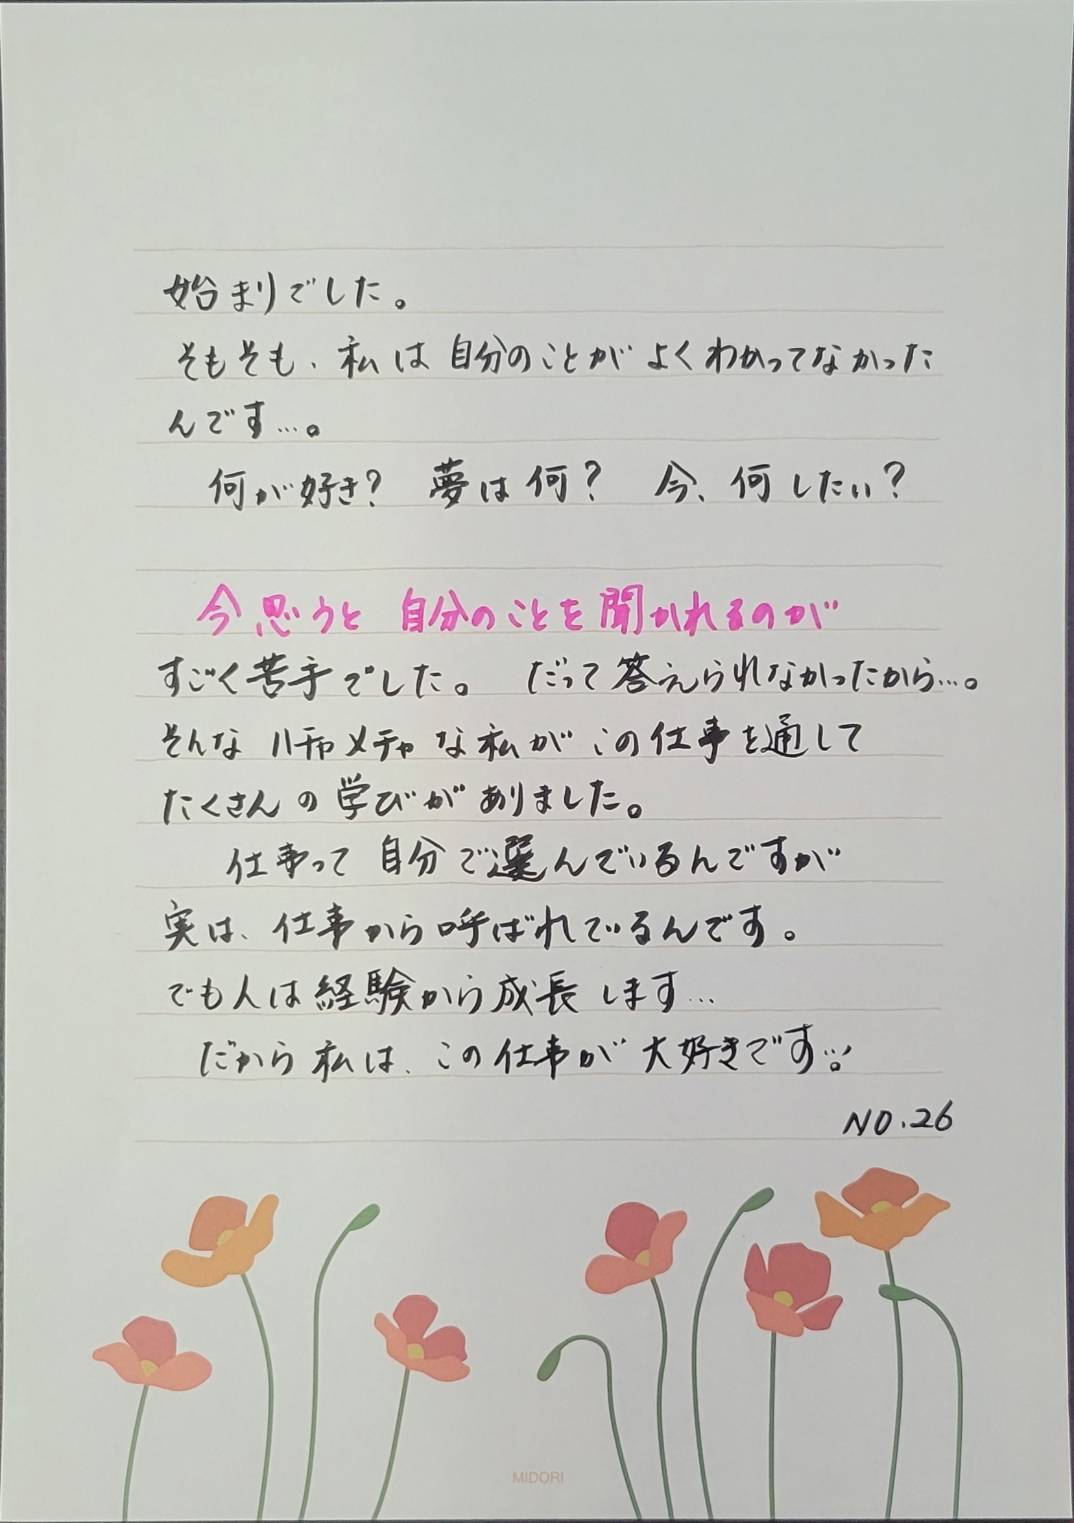 始まりでした。
そもそも、私は自分のことがよくわかってなかった
んです…。
何が好き? 夢は何? 今、何したい?
今思うと 自分のことを聞かれるのが
すごく苦手でした。 だって答えられなかったから…。
そんな ハチャメチャな私がこの仕事を通して
たくさんの学びがありました。
仕事って自分で選んでいるんですが
実は、仕事から呼ばれているんです。
でも人は経験から成長します…
だから私は、この仕事が大好きです
NO.26
MIDORI